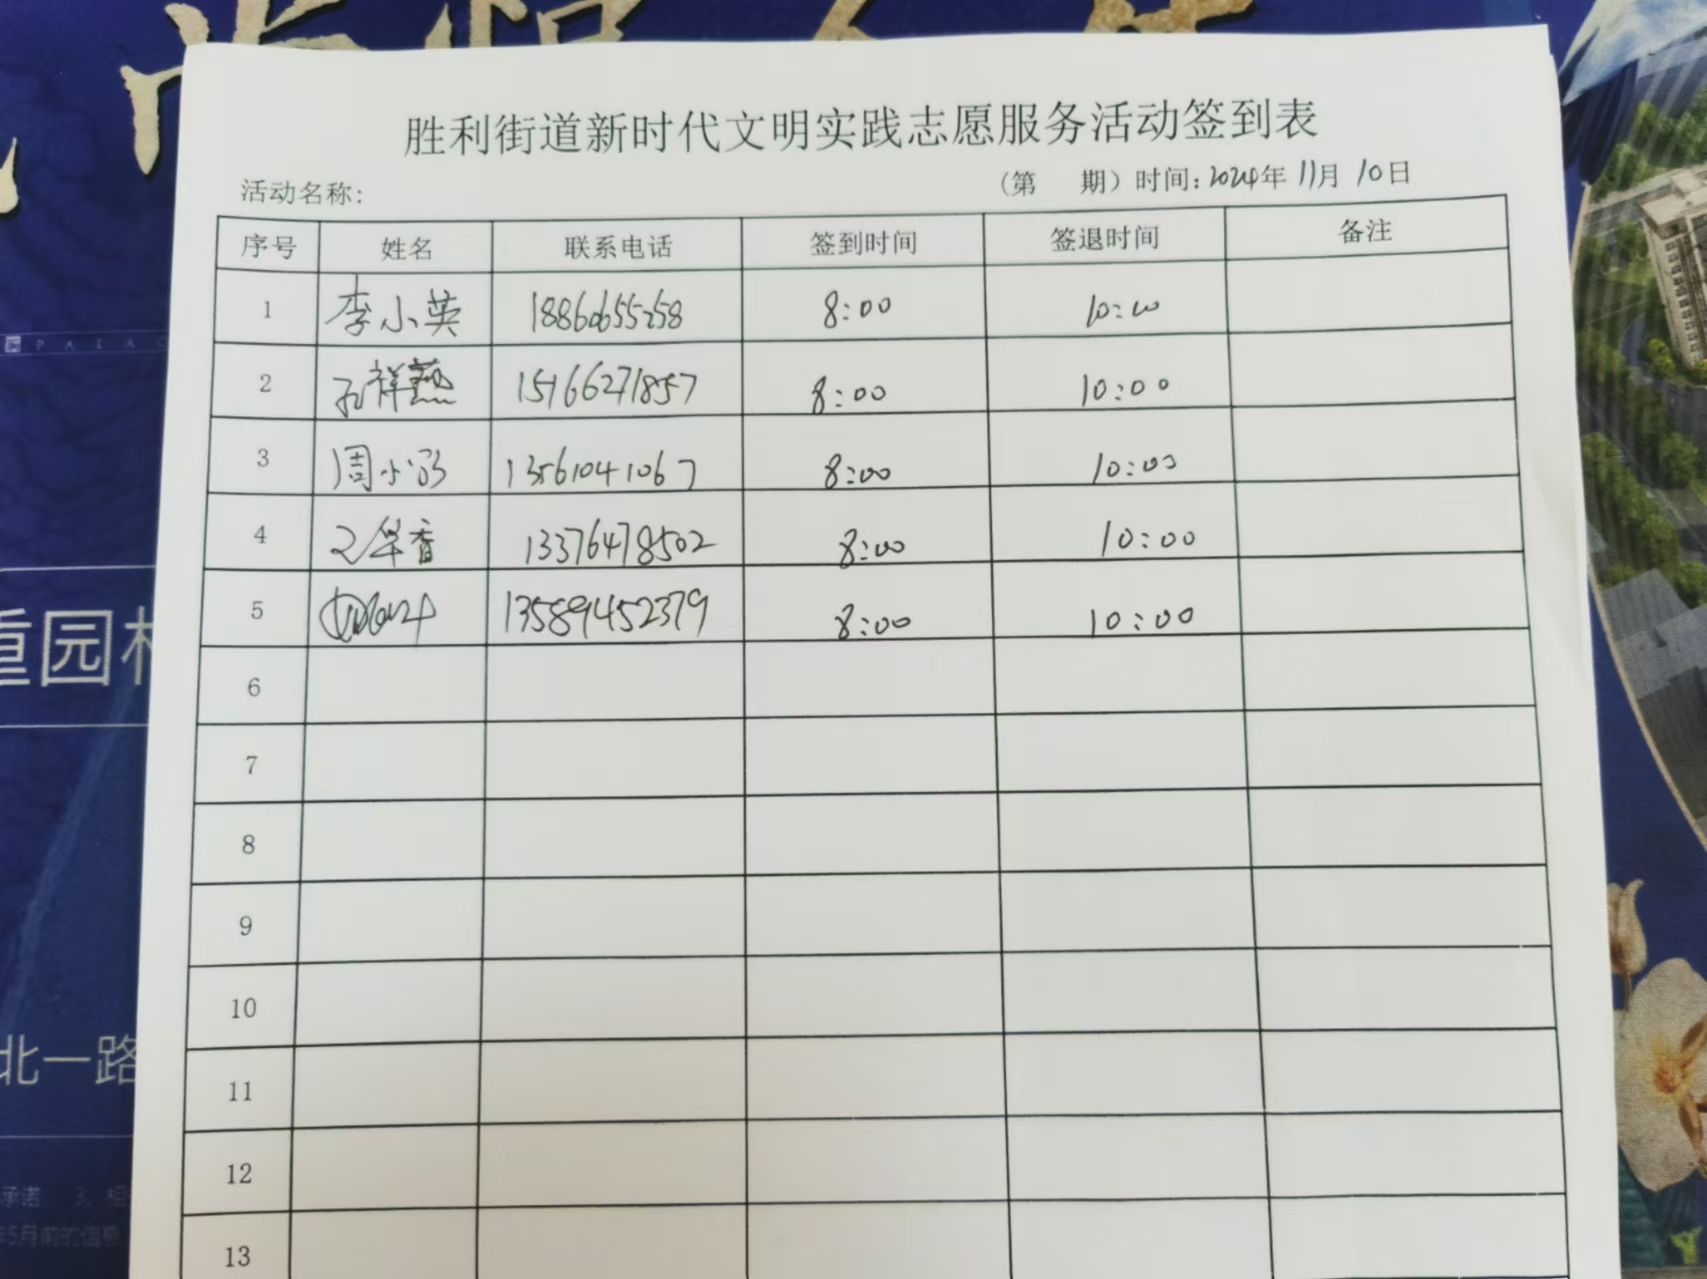 胜利街道新时代文明实践志愿服务活动签到表
活动名称: (第 期) 时间: 2024年 11月 10日
序号 姓名 联系电话 签到时间 签退时间 备注
1 李小英 18860655258 8:00 10:00
2 孔祥燕 15166271857 8:00 10:00
3 周小 13561041067 8:00 10:00
4 华香 13376478502 8:00 10:00
5 13589452379 8:00 10:00
6
7
8
9
10
11
12
13
重园林
北一路
承诺 3、相
年5月前的信息
PALAC